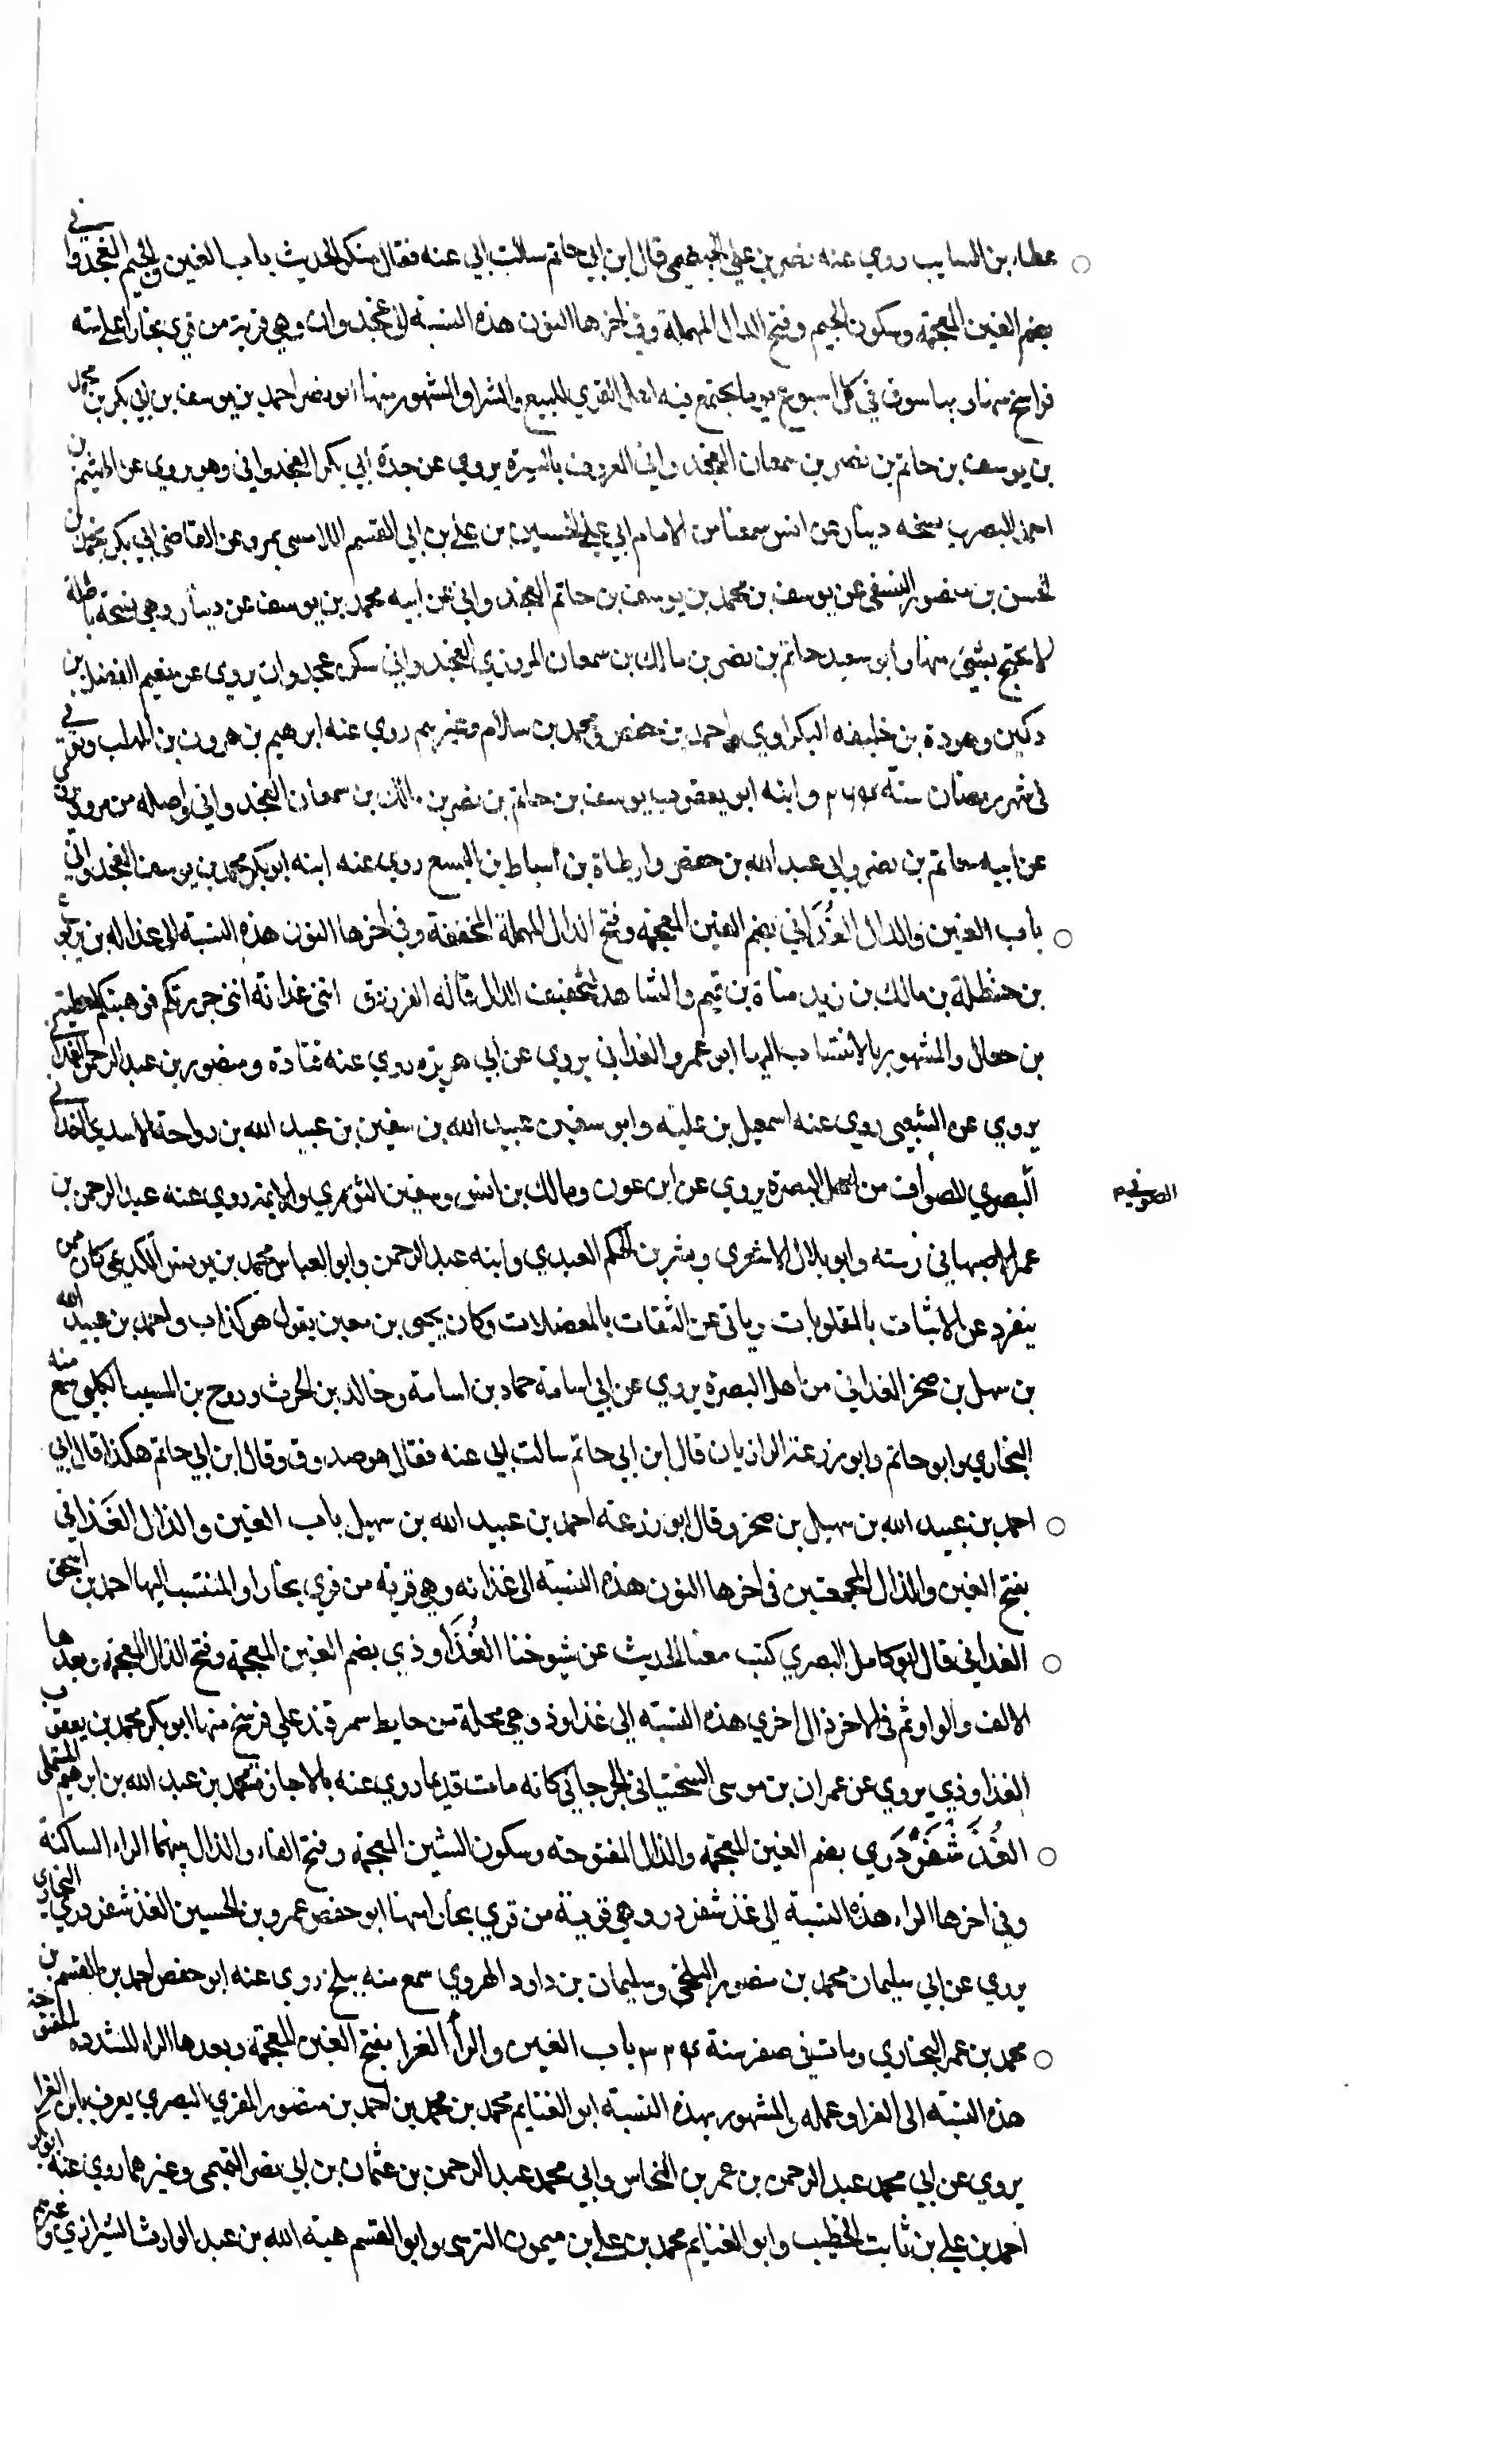 عطاء بن السايب روي عنه نصر بن علي الجهضمي قال ابن ابي حاتم سالت ابي عنه فقال منكر الحديث باب الغين والجيم الغجدواني
بضم الغين المعجمة وسكون الجيم وفتح الدال المهملة وفي اخرها النون هذه النسبة الى غجدوان وهي قرية من قري بخارا على ستة
فراسخ منها وبها سوق في كل اسبوع يوما يجتمع فيه اهل القري للبيع والشرا والمشهور منها ابو نصر احمد بن يوسف بن ابي بكر بن محمد
بن يوسف بن حاتم بن نصر بن سمعان الغجدواني المعروف يروي عن جده ابي بكر الغجدواني وهو يروي عن الهيثم بن
احمد البصري نسخه دينار عن انس سمعنا من الامام ابي علي الحسين بن علي بن ابي القسم اللامسي بمرو عن القاضي ابي بكر محمد بن
الحسن بن منصور النسفي عن يوسف بن محمد بن يوسف بن حاتم الغجدواني عن ابيه محمد بن يوسف عن دينار وهي نسخة باطلة
لا يحتج بشيء منها وابو سعيد حاتم بن نصر بن مالك بن سمعان المروزي الغجدواني سكن غجدوان يروي عن نعيم الفضل بن
دكين وهوذة بن خليفه البكراوي واحمد بن حفص ومحمد بن سلام وغيرهم روي عنه ابرهيم بن هرون بن المهلب وتوفي
في شهر رمضان سنة وابنه ابو يعقوب يوسف بن حاتم بن نصر بن مالك بن سمعان الغجدواني واصله من مرو يروي
عن ابيه حاتم بن نصر وابي عبد الله بن حفص وارطاة بن اسباط بن اليسع روي عنه ابنه ابو بكر محمد بن يوسف الغجدواني
باب الغين والدال الغُدَاني بضم الغين المعجمه وفتح الدال المهملة المخففة وفي اخرها النون هذه النسبة الى غدانه بن يربوع
بن حنظلة بن مالك بن زيد مناة بن تميم والشاهد لتخفيف الدال قاله الفرزدق ابني غدانه انني حررتكم فوهبتكم لعطية
بن جعال والمشهور بالانتساب اليها ابو عمرو الغداني يروي عن ابي هريره روي عنه قتادة ومنصور بن عبد الرحمن الغداني
يروي عن الشعبي روي عنه اسمعيل بن علية وابو سفين عبيد الله بن سفين بن عبيد الله بن رواحة الاسدي الغداني
البصري الصواف من اهل البصرة يروي عن ابن عون ومالك بن انس وسفين الثوري روي عنه عبد الرحمن بن
عمر الاصبهاني رسته وابو بلال الاشعري وبشر بن الحكم العبدي وابنه عبد الرحمن وابو العباس محمد بن يونس الكديمي كان ممن
ينفرد عن الاثبات بالمقلوبات وياتي عن الثقات بالمعضلات وكان يحيى بن معين يقول هو كذاب واحمد بن عبيد الله
بن سهل بن صخر الغداني من اهل البصرة يروي عن ابي اسامة حماد بن اسامة وخالد بن الحرث وروح بن المسيب الكليبي سمع منه
البخاري وابو حاتم وابو زرعة الرازيان قال ابن ابي حاتم سالت ابي عنه فقال هو صدوق وقال ابن ابي حاتم هكذا قال ابي
احمد بن عبيد الله بن سهيل بن صخر وقال ابو زرعة احمد بن عبيد الله بن سهيل باب الغين والذال الغَذَاني
بفتح الغين والذال المعجمتين في اخرها النون هذه النسبة الى غذانه وهي قرية من قري بخارا والمنتسب اليها احمد بن اسحق
الغذاني قال ابو كامل البصري كتب معنا الحديث عن شيوخنا الغُذَاوذي بضم الغين المعجمة وفتح الذال المعجمة وبعدها
الالف والواو ثم في الاخر ذال اخري هذه النسبة الى غذاوذ وهي محلة من حايط سمرقند على فرسخ منها ابو بكر محمد بن يعقوب
الغذاوذي يروي عن عمران بن موسى السختياني الجرجاني كانه مات قديما روي عنه بالاجازة محمد بن عبد الله بن ابرهيم المستملي
الغُذَشْفَرْدَري بضم الغين المعجمة والذال المفتوحة وسكون الشين المعجمة وفتح الفاء والدال بينهما الراء الساكنة
وفي اخرها الراء هذه النسبة الى غذشفردر وهي قرية من قري بخارا منها ابو حفص عمرو بن الحسين الغذشفردري البخاري
يروي عن ابي سليمان محمد بن منصور البلخي وسليمان بن داود الهروي سمع منه ببلخ روي عنه ابو حفص احمد بن القسم بن
محمد بن عمر البخاري ومات في صفر سنة باب الغين والرا الغرا بفتح الغين المعجمة وبعدها الراء المشدده المفتوحة
هذه النسبة الى الغرا وعمله والمشهور بهذه النسبة ابو الغنايم محمد بن محمد بن احمد بن منصور المقري البصري يعرف بابن الغرا
يروي عن ابي محمد عبد الرحمن بن عمر بن النحاس وابي محمد عبد الرحمن بن عثمان بن ابي نصر التميمي وغيرهما روي عنه ابو بكر
احمد بن علي بن ثابت الخطيب وابو الغنايم محمد بن علي بن ميمون النرسي وابو القسم هبة الله بن عبد الوارث الشيرازي وغيرهم